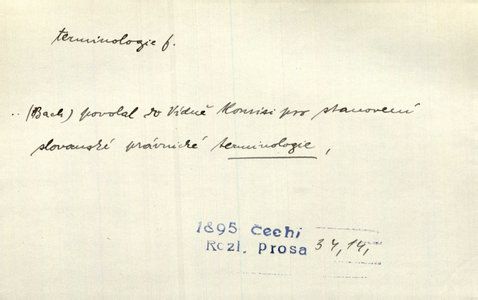 terminologie f.
.. (Bach) povolal do Vídně komisi pro stanovení
slovanské právnické terminologie,
1895 Čechi
Rozl. Prosa 34, 14,